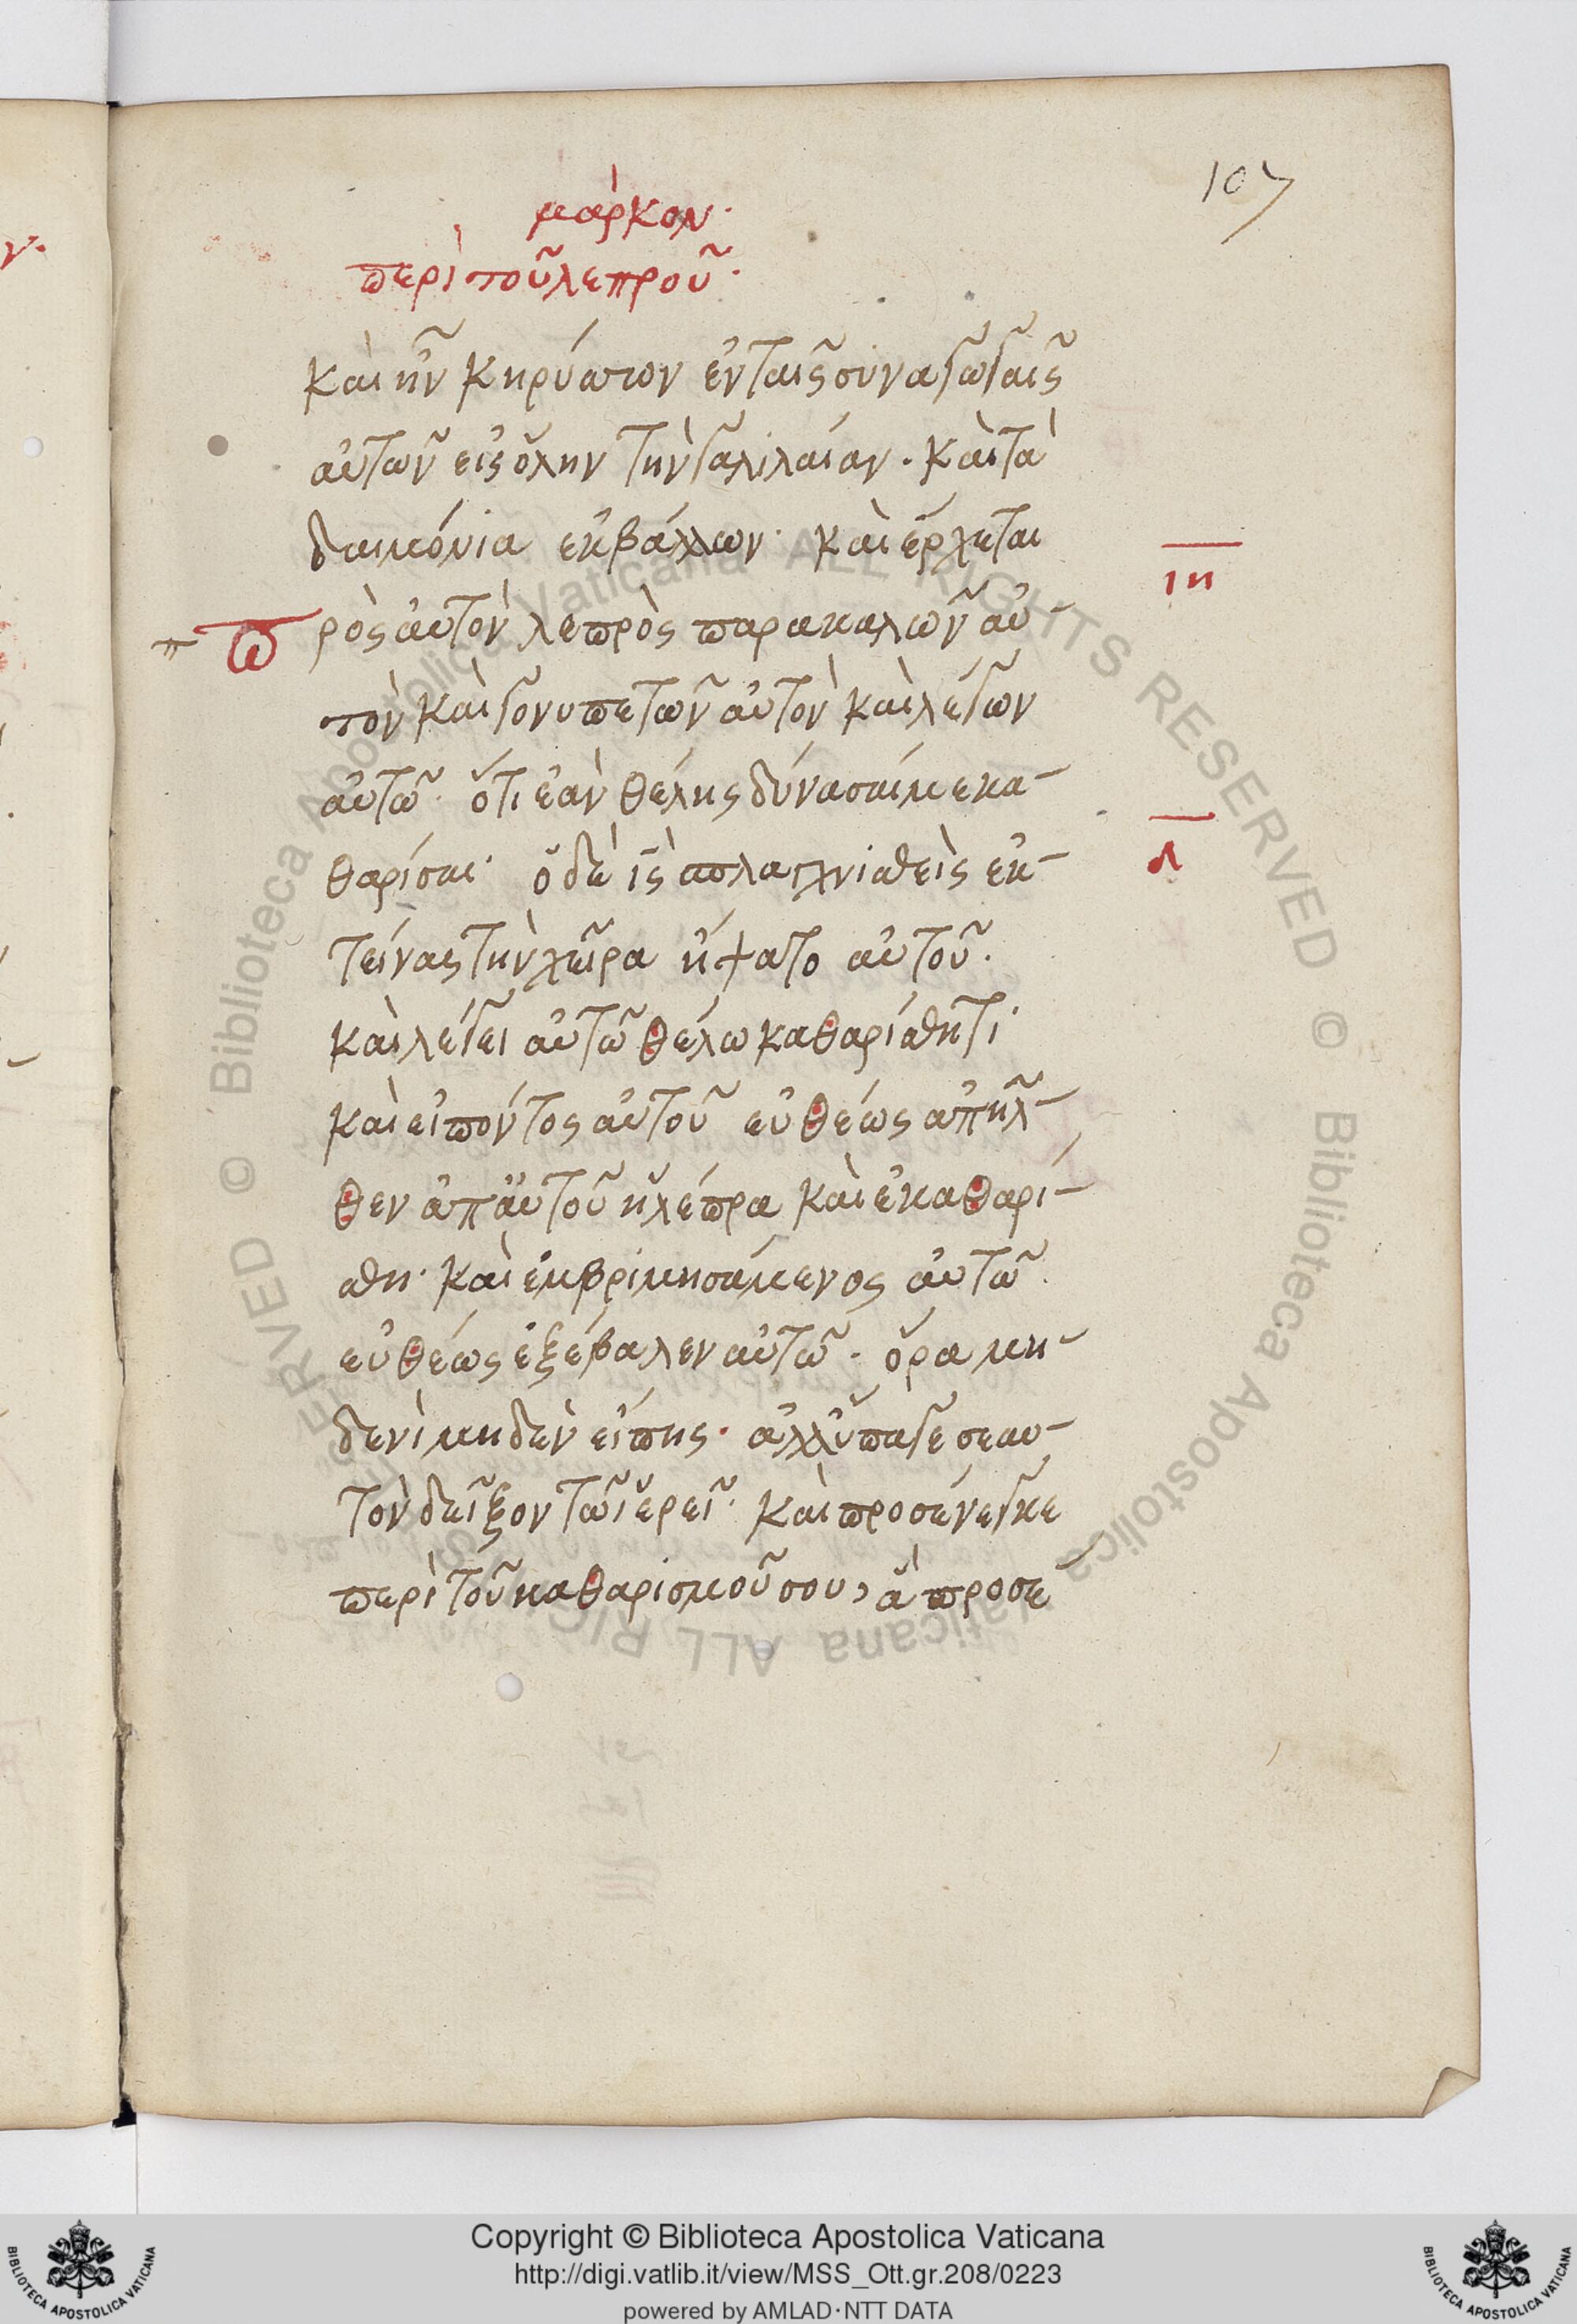 107
μάρκον·
περὶ τοῦ λεπροῦ·
καὶ ἦν κηρύσσον ἐν ταῖς συναγωγαῖς
αὐτῶν εἰς ὅλην τὴν γαλιλαίαν. καὶ τὰ
δαιμόνια ἐκβάλλων· καὶ ἔρχεται
ιη
π πρὸς αὐτὸν λεπρὸς παρακαλῶν αὐ-
τὸν καὶ γονυπετῶν αὐτὸν καὶ λέγων
αὐτῶ· ὅτι ἐὰν θέλης δύνασαί με κα-
θαρίσαι· ὁ δὲ ις σπλαγχνισθεὶς ἐκ-
τείνας τὴν χεῖρα ἥψατο αὐτοῦ.
καὶ λέγει αὐτῶ θέλω καθαρίσθητι·
καὶ εἰπόντος αὐτοῦ εὐθέως ἀπῆλ-
θεν ἀπ αὐτοῦ ἡ λέπρα καὶ ἐκαθαρί-
σθη· καὶ ἐμβριμησάμενος αὐτῶ·
εὐθέως ἐξέβαλεν αὐτῶ· ὅρα μη-
δενὶ μηδὲν εἴπης· ἀλλ ὕπαγε σεαυ-
τὸν δεῖξον τῶ ἱερεῖ· καὶ προσένεγκε
περὶ τοῦ καθαρισμοῦ σου, ἃ προσέ
Copyright © Biblioteca Apostolica Vaticana
http://digi.vatlib.it/view/MSS_Ott.gr.208/0223
powered by AMLAD·NTT DATA
BIBLIOTECA APOSTOLICA VATICANA
BIBLIOTECA APOSTOLICA VATICANA
© Biblioteca Apostolica Vaticana ALL RIGHTS RESERVED
© Biblioteca Apostolica Vaticana ALL RIGHTS RESERVED